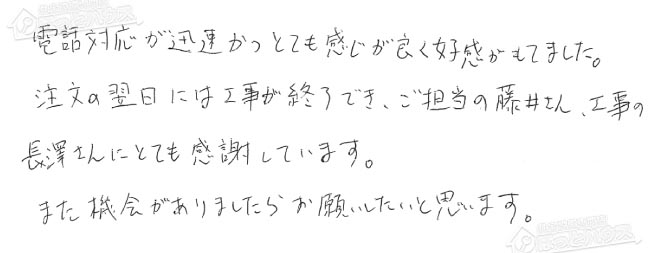 電話対応が迅速かつとても感じが良く好感がもてました。
注文の翌日には工事が終了でき、ご担当の藤井さん、工事の
長澤さんにとても感謝しています。
また機会がありましたらお願いしたいと思います。